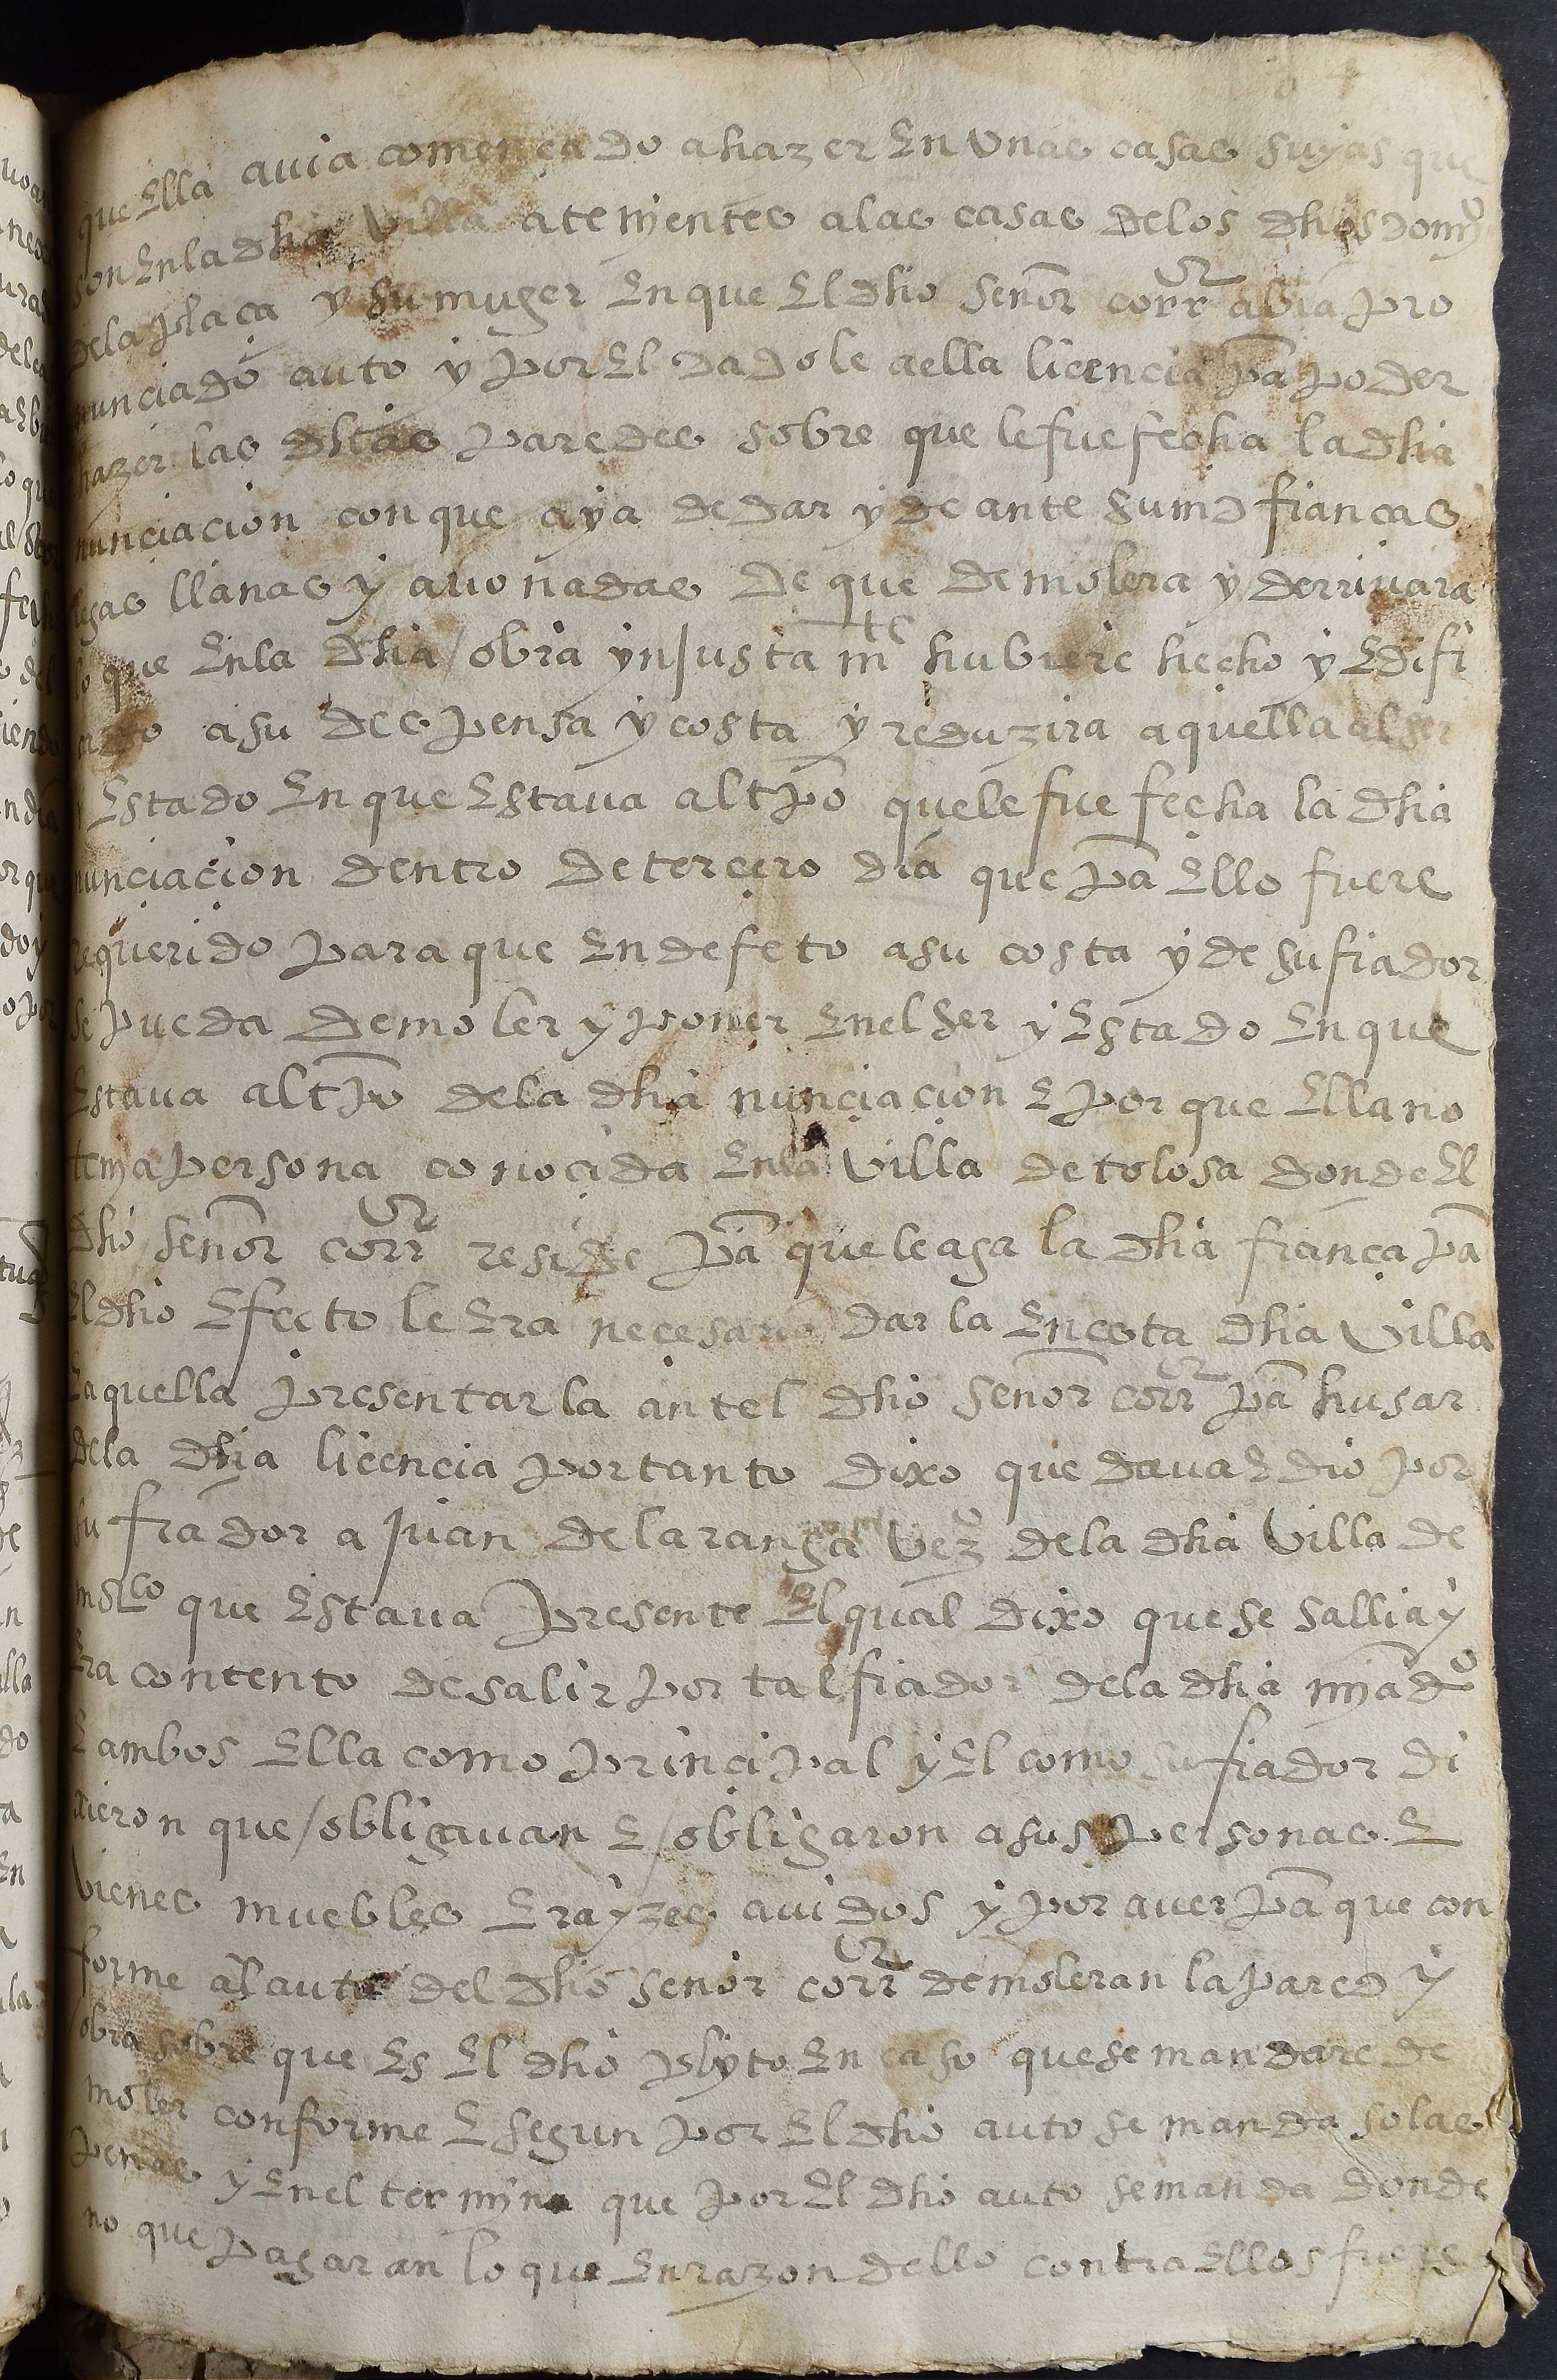 que Ella avia començado a hazer En Unas casas suyas que
son En la dha Villa atenientes a las casas de los dhos domº
de la plaça y su muger En que El dho señor corror abia pro
nunciado auto y por El dadole a ella licencia pa poder
hazer las dhas paredes sobre que le fue fecha la dha
nunciacion con que aya de dar y de ante su md fianças
legas llanas y avonadas de que demolera y derrivara
lo que En la dha obra ynjustamte hubiere hecho y Edifi
cado a su despensa y costa y reduzira aquella al ser
y Estado En que Estava al tpo que le fue fecha la dha
nunciacion dentro de tercero dia que pa Ello fuere
requerido para que En defeto a su costa y de su fiador
se pueda demoler y poner En el ser y Estado En que
Estava al tpo de la dha nunciacion E por que Ella no
tenia persona conocida En la Villa de tolosa donde El
dho señor corror reside pa que le aga la dha fiança pa
El dho Efecto le Era necesario dar la En esta dha Villa
E aquella presentar la antel dho señor corror pa husar
de la dha licencia por tanto dixo que dava E dio por
su fiador a Juan de laranga vezº de la dha Villa de
que Estava presente El qual dixo que se sallia y
Era contento de salir por tal fiador de la dha
E ambos Ella como principal y El como su fiador di
xieron que obligavan E obligaron a sus personas E
vienes muebles E rayzes avidos y por aver pa que con
forme al auto del dho señor corror demoleran la pared y
obra sobre que Es El dho plyto En caso que se mandare de
moler conforme E segun por El dho auto se manda so las
penas y En el termino que por El dho auto se manda donde
no que pagaran lo que En razon dello contra Ellos fuere